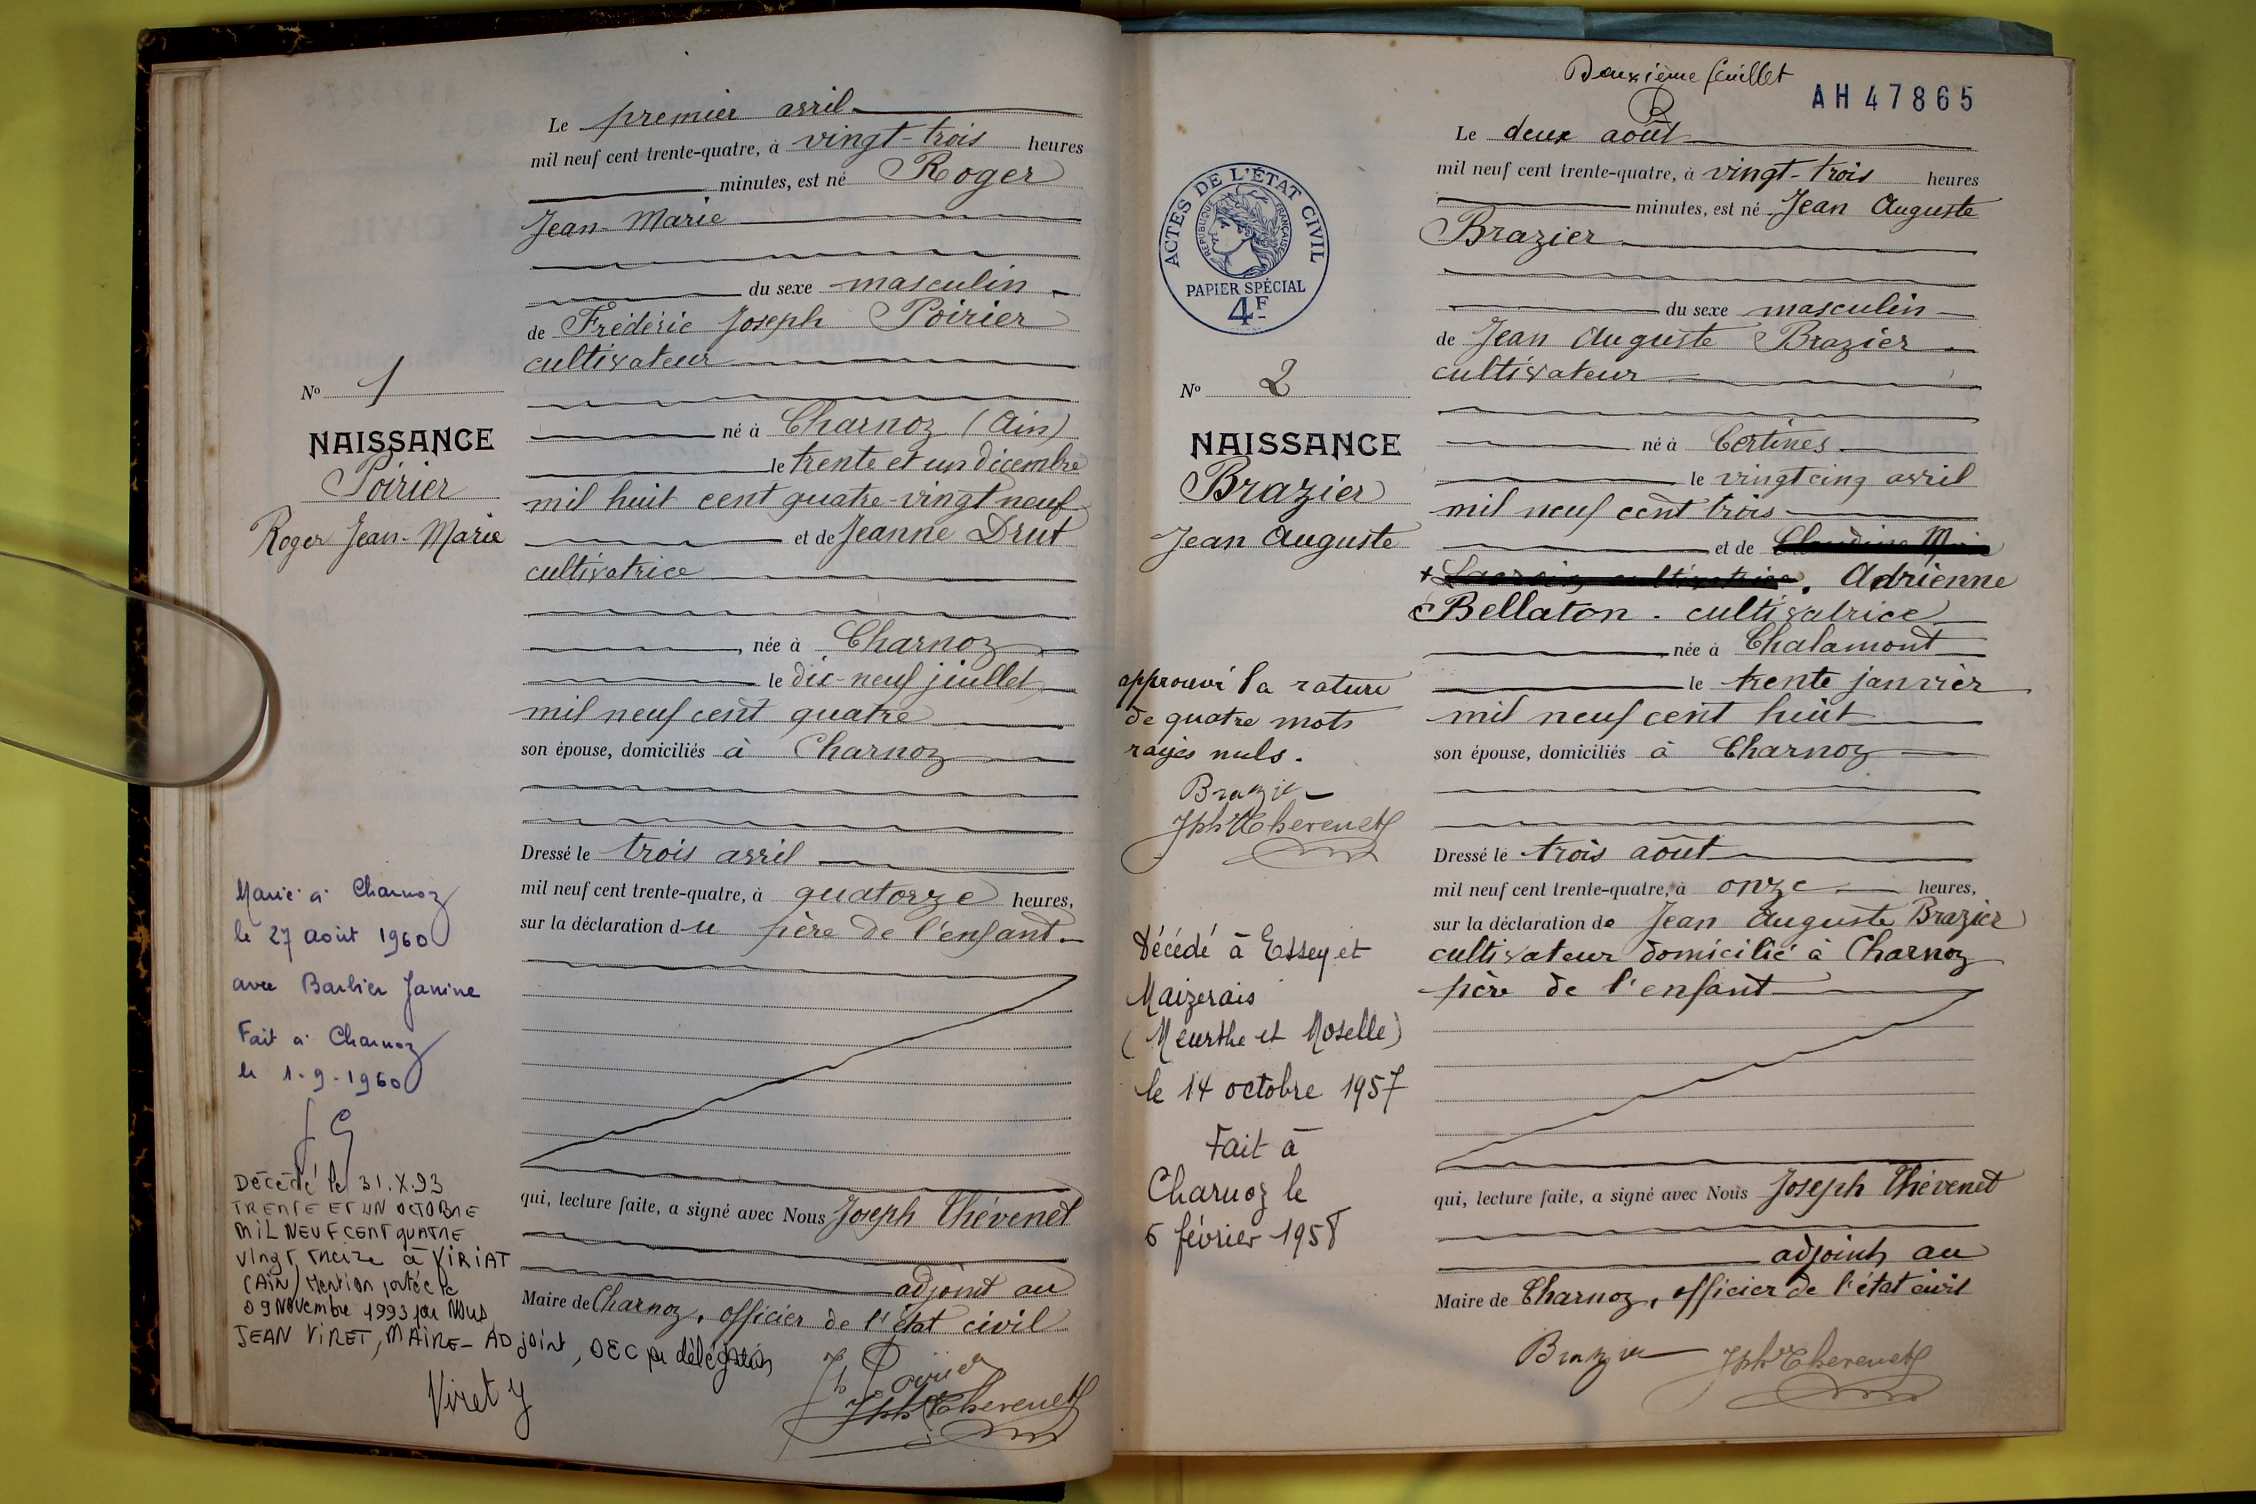 Le premier avril
mil neuf cent trente-quatre, à vingt-trois heures
minutes, est né Roger
Jean-Marie
du sexe masculin
de Fréderic Joseph Poirier
cultivateur
né à Charnoz (Ain)
le trente et un décembre
mil huit cent quatre-vingt neuf
et de Jeanne Drut
cultivatrice
née à Charnoz
le dix-neuf juillet
mil neuf cent quatre
son épouse, domiciliés à Charnoz
Dressé le trois avril
mil neuf cent trente-quatre, à quatorze heures,
sur la déclaration du père de l'enfant.
qui, lecture faite, a signé avec Nous Joseph Thévenet
adjoint au
Maire de Charnoz, officier de l'état civil
Jh Poirier
Jph Thevenet
No 1
NAISSANCE
Poirier
Roger Jean-Marie
Marié à Charnoz
le 27 août 1960
avec Barbier Janine
Fait à Charnoz
le 1-9-1960
Décédé le 31.X.93
TRENTE ET UN OCTOBRE
MIL NEUF CENT QUATRE
VINGT TREIZE à VIRIAT
(AIN) Mention portée le
09 Novembre 1993 par Nous
JEAN VIRET, MAIRE-ADjoint, OEC par délégation
Viret J
Deuxième feuillet
AH 47865
ACTES DE L'ÉTAT CIVIL
RÉPUBLIQUE FRANÇAISE
PAPIER SPÉCIAL
4F
No 2
NAISSANCE
Brazier
Jean Auguste
approuvé la rature
de quatre mots
rayés nuls.
Brazier
Jph Thevenet
Décédé à Essey et
Maizerais
(Meurthe et Moselle)
le 14 octobre 1957
Fait à
Charnoz le
6 février 1958
Le deux août
mil neuf cent trente-quatre, à vingt-trois heures
minutes, est né Jean Auguste
Brazier
du sexe masculin
de Jean Auguste Brazier
cultivateur
né à Certines
le vingt cinq avril
mil neuf cent trois
et de Claudine Marie
+ Lacroix cultivatrice. Adrienne
Bellaton. cultivatrice
née à Chalamont
le trente janvier
mil neuf cent huit
son épouse, domiciliés à Charnoz
Dressé le trois août
mil neuf cent trente-quatre, à onze heures,
sur la déclaration de Jean Auguste Brazier
cultivateur domicilié à Charnoz
père de l'enfant
qui, lecture faite, a signé avec Nous Joseph Thévenet
adjoint au
Maire de Charnoz, officier de l'état civil
Brazier Jph Thevenet